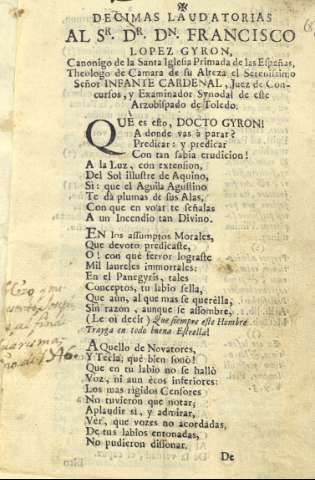 DECIMAS LAUDATORIAS
AL SR. DR. DN. FRANCISCO
LOPEZ GYRON,
Canonigo de la Santa Iglesia Primada de las Españas,
Theologo de Camara de su Alteza el Serenissimo
Señor INFANTE CARDENAL, Juez de Con-
cursos, y Examinador Synodal de este
Arzobispado de Toledo.
QUE es esto, DOCTO GYRON!
A donde vas à parar?
Predicar: y predicar
Con tan sabia erudicion!
A la Luz, con extension,
Del Sol illustre de Aquino,
Si: que el Aguila Agustino
Te dà plumas de sus Alas,
Con que en volar te señalas
A un Incendio tan Divino.
EN los assumptos Morales,
Que devoto predicaste,
O! con què fervor lograste
Mil laureles immortales:
En el Panegyris, tales
Conceptos, tu labio sella,
Que aùn, al que mas se querèlla,
Sin razòn, aunque se assombre,
(Le oì decir) Que siempre este Hombre
Trayga en todo buena Estrella!
AQuello de Novatores,
Y Tecla; què bien sonò!
Que en tu labio no se hallò
Voz, ni aun ècos inferiores:
Los mas rigidos Censores
No tuvieron que notar;
Aplaudir si, y admirar,
Ver, que vozes no acordadas,
De tus labios entonadas,
No pudieron dissonar.
De